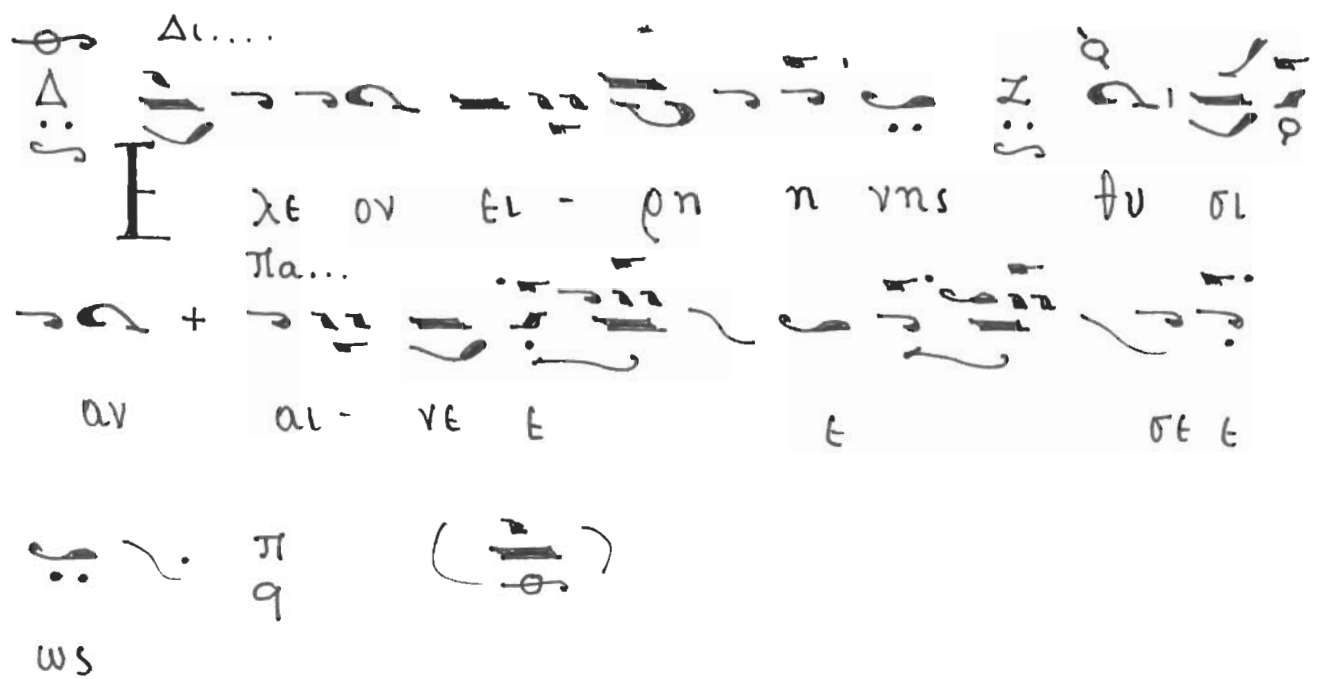 Δι....
Δ
Ε λε ον ει - ρη η νης θυ σι
Πα...
αν αι - νε ε ε σε ε
π
q
ως